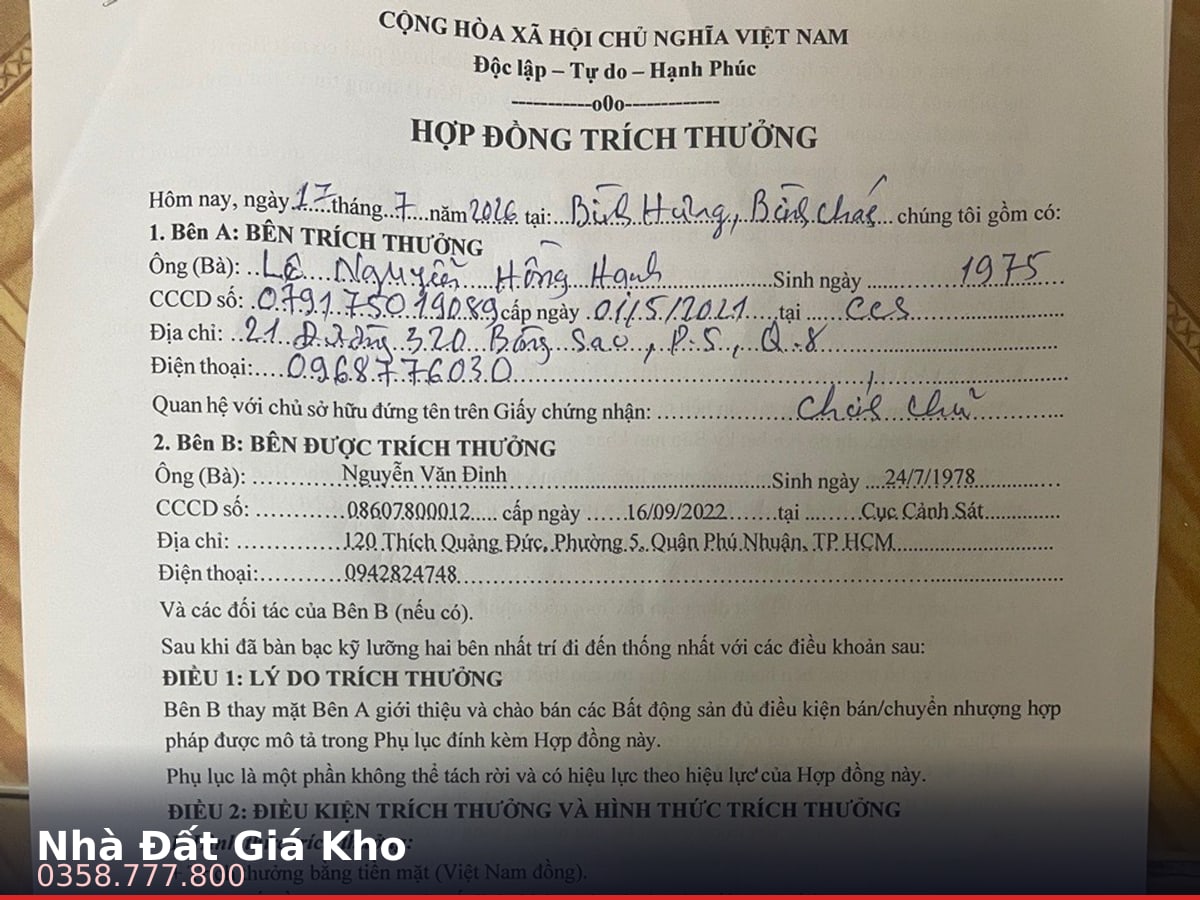 CỘNG HÒA XÃ HỘI CHỦ NGHĨA VIỆT NAM
Độc lập – Tự do – Hạnh Phúc
-----------o0o-------------
HỢP ĐỒNG TRÍCH THƯỞNG
Hôm nay, ngày 17 tháng 7 năm 2026 tại: Bình Hưng, Bình Chánh chúng tôi gồm có:
1. Bên A: BÊN TRÍCH THƯỞNG
Ông (Bà): Lê Nguyễn Hồng Hạnh Sinh ngày 1975
CCCD số: 079175019089 cấp ngày 01/5/2021 tại CCS
Địa chỉ: 21 Đường 320 Bông Sao, P.5, Q.8
Điện thoại: 0968776030
Quan hệ với chủ sở hữu đứng tên trên Giấy chứng nhận: Chính chủ
2. Bên B: BÊN ĐƯỢC TRÍCH THƯỞNG
Ông (Bà): Nguyễn Văn Đinh Sinh ngày 24/7/1978
CCCD số: 08607800012 cấp ngày 16/09/2022 tại Cục Cảnh Sát
Địa chỉ: 120 Thích Quảng Đức, Phường 5, Quận Phú Nhuận, TP HCM
Điện thoại: 0942824748
Và các đối tác của Bên B (nếu có).
Sau khi đã bàn bạc kỹ lưỡng hai bên nhất trí đi đến thống nhất với các điều khoản sau:
ĐIỀU 1: LÝ DO TRÍCH THƯỞNG
Bên B thay mặt Bên A giới thiệu và chào bán các Bất động sản đủ điều kiện bán/chuyển nhượng hợp
pháp được mô tả trong Phụ lục đính kèm Hợp đồng này.
Phụ lục là một phần không thể tách rời và có hiệu lực theo hiệu lực của Hợp đồng này.
ĐIỀU 2: ĐIỀU KIỆN TRÍCH THƯỞNG VÀ HÌNH THỨC TRÍCH THƯỞNG
Nhà Đất Giá Kho
0358.777.800
thưởng bằng tiền mặt (Việt Nam đồng).